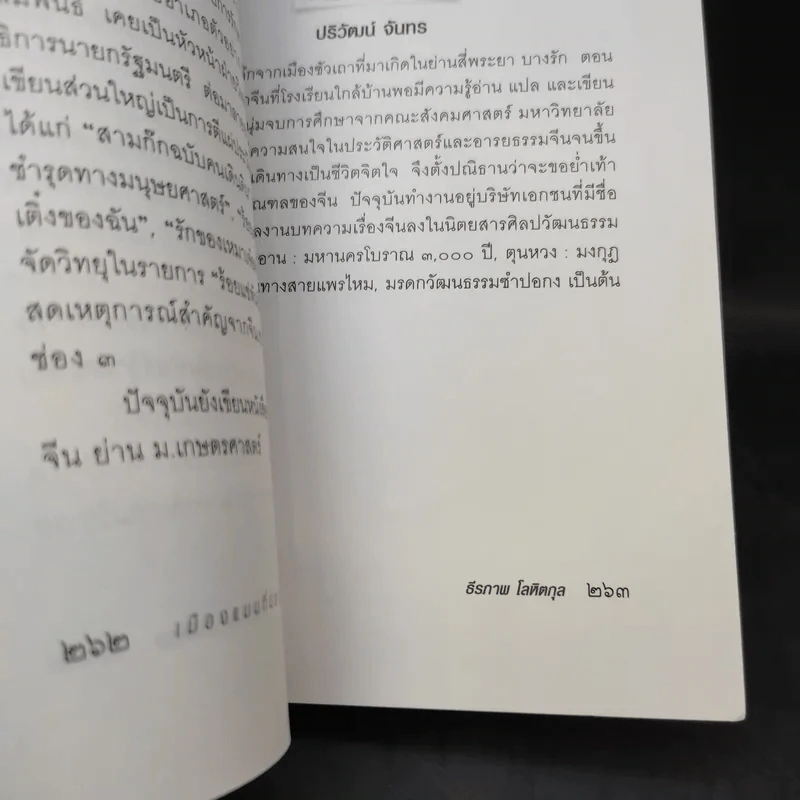 เคยเป็นหัวหน้า
ธิการนายกรัฐมนตรี ต่อมา
เขียนส่วนใหญ่เป็นการตีแผ่
ได้แก่ "สามก๊กฉบับคนเดิน
ชำรุดทางมนุษยศาสตร์",
เติ้งของฉัน", "รักของเหมา
จัดวิทยุในรายการ "ร้อย
สดเหตุการณ์สำคัญจาก
ช่อง ๓
ปัจจุบันยังเขียน
จีน ย่าน ม.เกษตรศาสตร์
๒๖๒ เมือง
ปริวัฒน์ จันทร
ักจากเมืองซัวเถาที่มาเกิดในย่านสี่พระยา บางรัก ตอน
าจีนที่โรงเรียนใกล้บ้านพอมีความรู้อ่าน แปล และเขียน
นุ่มจบการศึกษาจากคณะสังคมศาสตร์ มหาวิทยาลัย
ความสนใจในประวัติศาสตร์และอารยธรรมจีนจนขึ้น
เดินทางเป็นชีวิตจิตใจ จึงตั้งปณิธานว่าจะขอย่ำเท้า
ณฑลของจีน ปัจจุบันทำงานอยู่บริษัทเอกชนที่มีชื่อ
ลงานบทความเรื่องจีนลงในนิตยสารศิลปวัฒนธรรม
อาน : มหานครโบราณ ๓,๐๐๐ ปี, ตุนหวง : มงกุฎ
ทางสายแพรไหม, มรดกวัฒนธรรมชำปอกง เป็นต้น
ธีรภาพ โลหิตกุล ๒๖๓